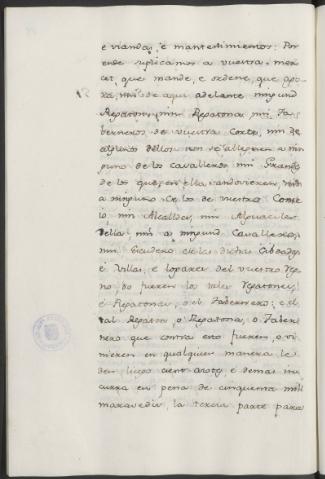 e viandas, e mantenimientos: Por
ende suplicamos a vuestra mer
cet, que mande, e ordene, que ago
ra, nin de aqui adelante ningund
Regaton, nin Regatona, nin Ta
berneros de vuestra Corte, nin de
algunos dellos non se alleguen a nin
guno de los cavalleros, nin Grandes
de los que en ella andovieren, nin
a ninguno de los de vuestro Conse
jo, nin Alcalldes, nin Alguaciles
della, nin a ningund Cavallero,
nin Escudero de las dichas Cibdades
e Villas, e logares del vuestro Reg
no, do fueren los tales Regatones,
e Regatonas, o el Tabernero; e el
tal Regaton, o Regatona, o Taber
nero que contra esto fueren, o vi
nieren en qualquier manera le
den luego cient azotes, e demas in
curra en pena de cinquenta mill
maravedis, la tercia parte para